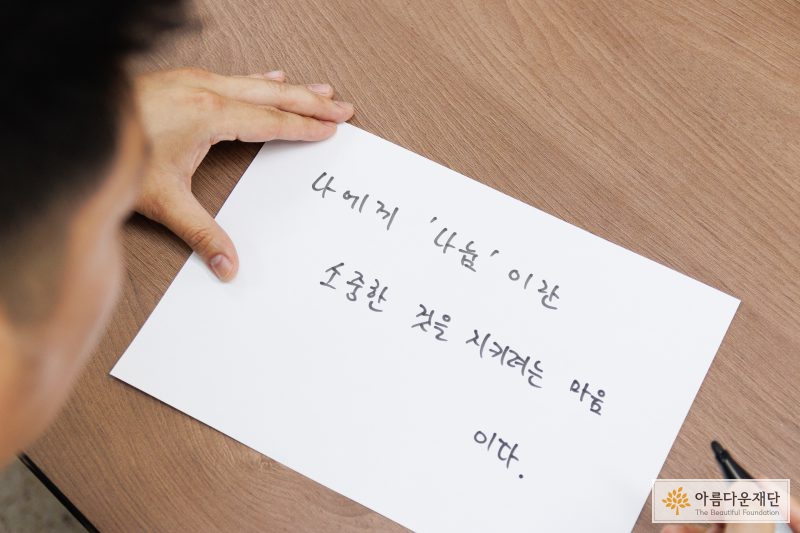 나에게 '나눔'이란
소중한 것을 지키려는 마음
이다.
아름다운재단
The Beautiful Foundation